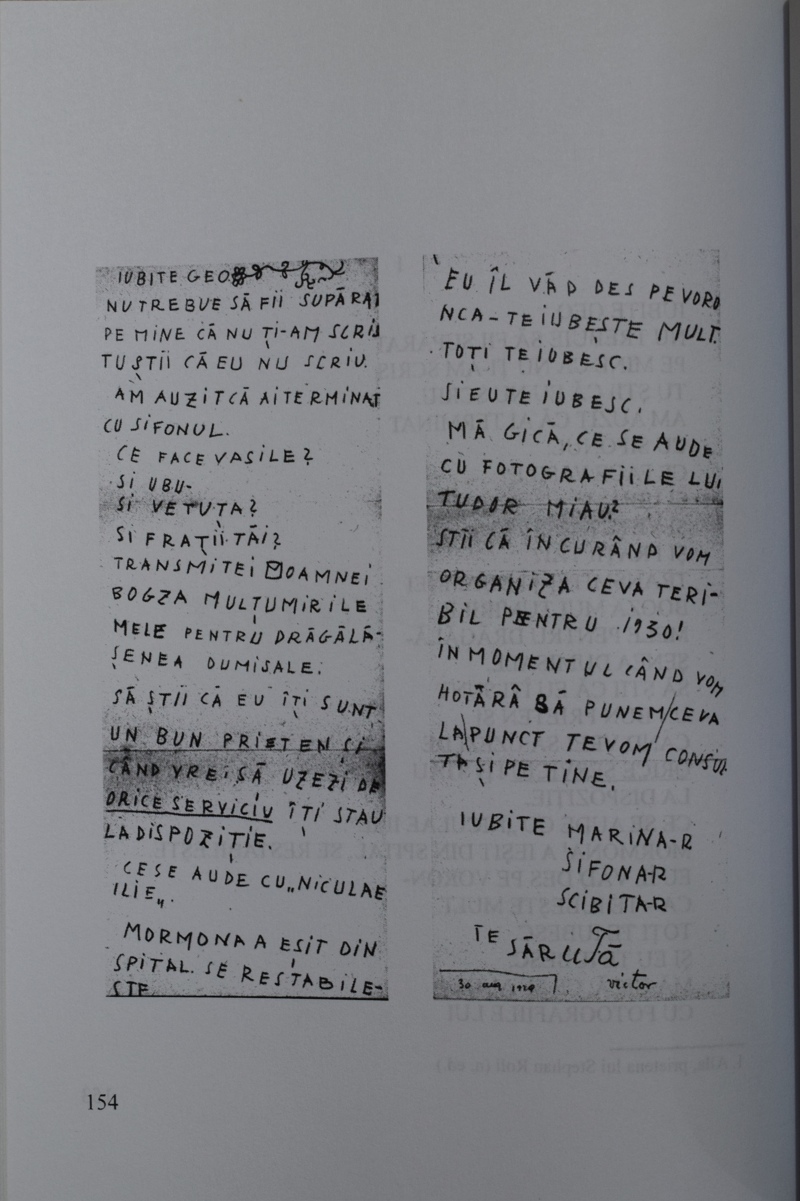 IUBITE GEO
NU TREBUE SĂ FII SUPĂRAT
PE MINE CĂ NU ȚI-AM SCRIS
TU ȘTII CĂ EU NU SCRIU.
AM AUZIT CĂ AI TERMINAT
CU SIFONUL.
CE FACE VASILE?
SI UBU-
SI VETUȚA?
SI FRAȚII TĂI?
TRANSMITEI DOAMNEI
BOGZA MULȚUMIRILE
MELE PENTRU DRĂGĂLĂ-
ȘENEA DUMISALE.
SĂ ȘTII CĂ EU ÎȚI SUNT
UN BUN PRIETEN ȘI
CÂND VREI SĂ UZEZI DE
ORICE SERVICIU ÎȚI STAU
LA DISPOZIȚIE.
CE SE AUDE CU „NICULAE
ILIE„.
MORMONA A ESIT DIN
SPITAL. SE RESTABILE-
STE
EU ÎL VĂD DES PE VORO
NCA-TE IUBEȘTE MULT.
TOȚI TE IUBESC.
SI EU TE IUBESC.
MĂ GICĂ, CE SE AUDE
CU FOTOGRAFIILE LUI
TUDOR MIAU?
STII CĂ ÎN CURÂND VOM
ORGANIZA CEVA TERI-
BIL PENTRU 1930!
ÎN MOMENTUL CÂND VOM
HOTĂRÂ SĂ PUNEM CEVA
LA PUNCT TE VOM CONSUL
TA ȘI PE TINE.
IUBITE MARINA-R
SIFONA-R
SCIBITA-R
TE SĂRUTĂ
30 aug 1929 victor
154